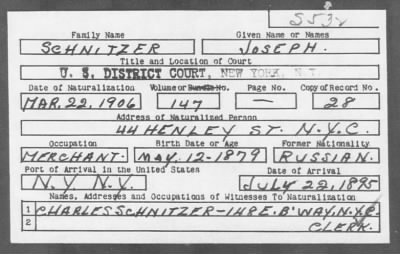 S532
Family Name Given Name or Names
SCHNITZER JOSEPH.
Title and Location of Court
U. S. DISTRICT COURT, NEW YORK, N.Y.
Date of Naturalization Volume or Bundle No. Page No. Copy of Record No.
MAR. 22, 1906 147 — 28
Address of Naturalized Person
44 HENLEY ST. N.Y.C.
Occupation Birth Date or Age Former Nationality
MERCHANT. MAY. 12-1879 RUSSIAN.
Port of Arrival in the United States Date of Arrival
N.Y. N.Y. JULY 22, 1895
Names, Addresses and Occupations of Witnesses To Naturalization
1 CHARLES SCHNITZER - 1 B'WAY, N.Y.C.
2 CLERK.